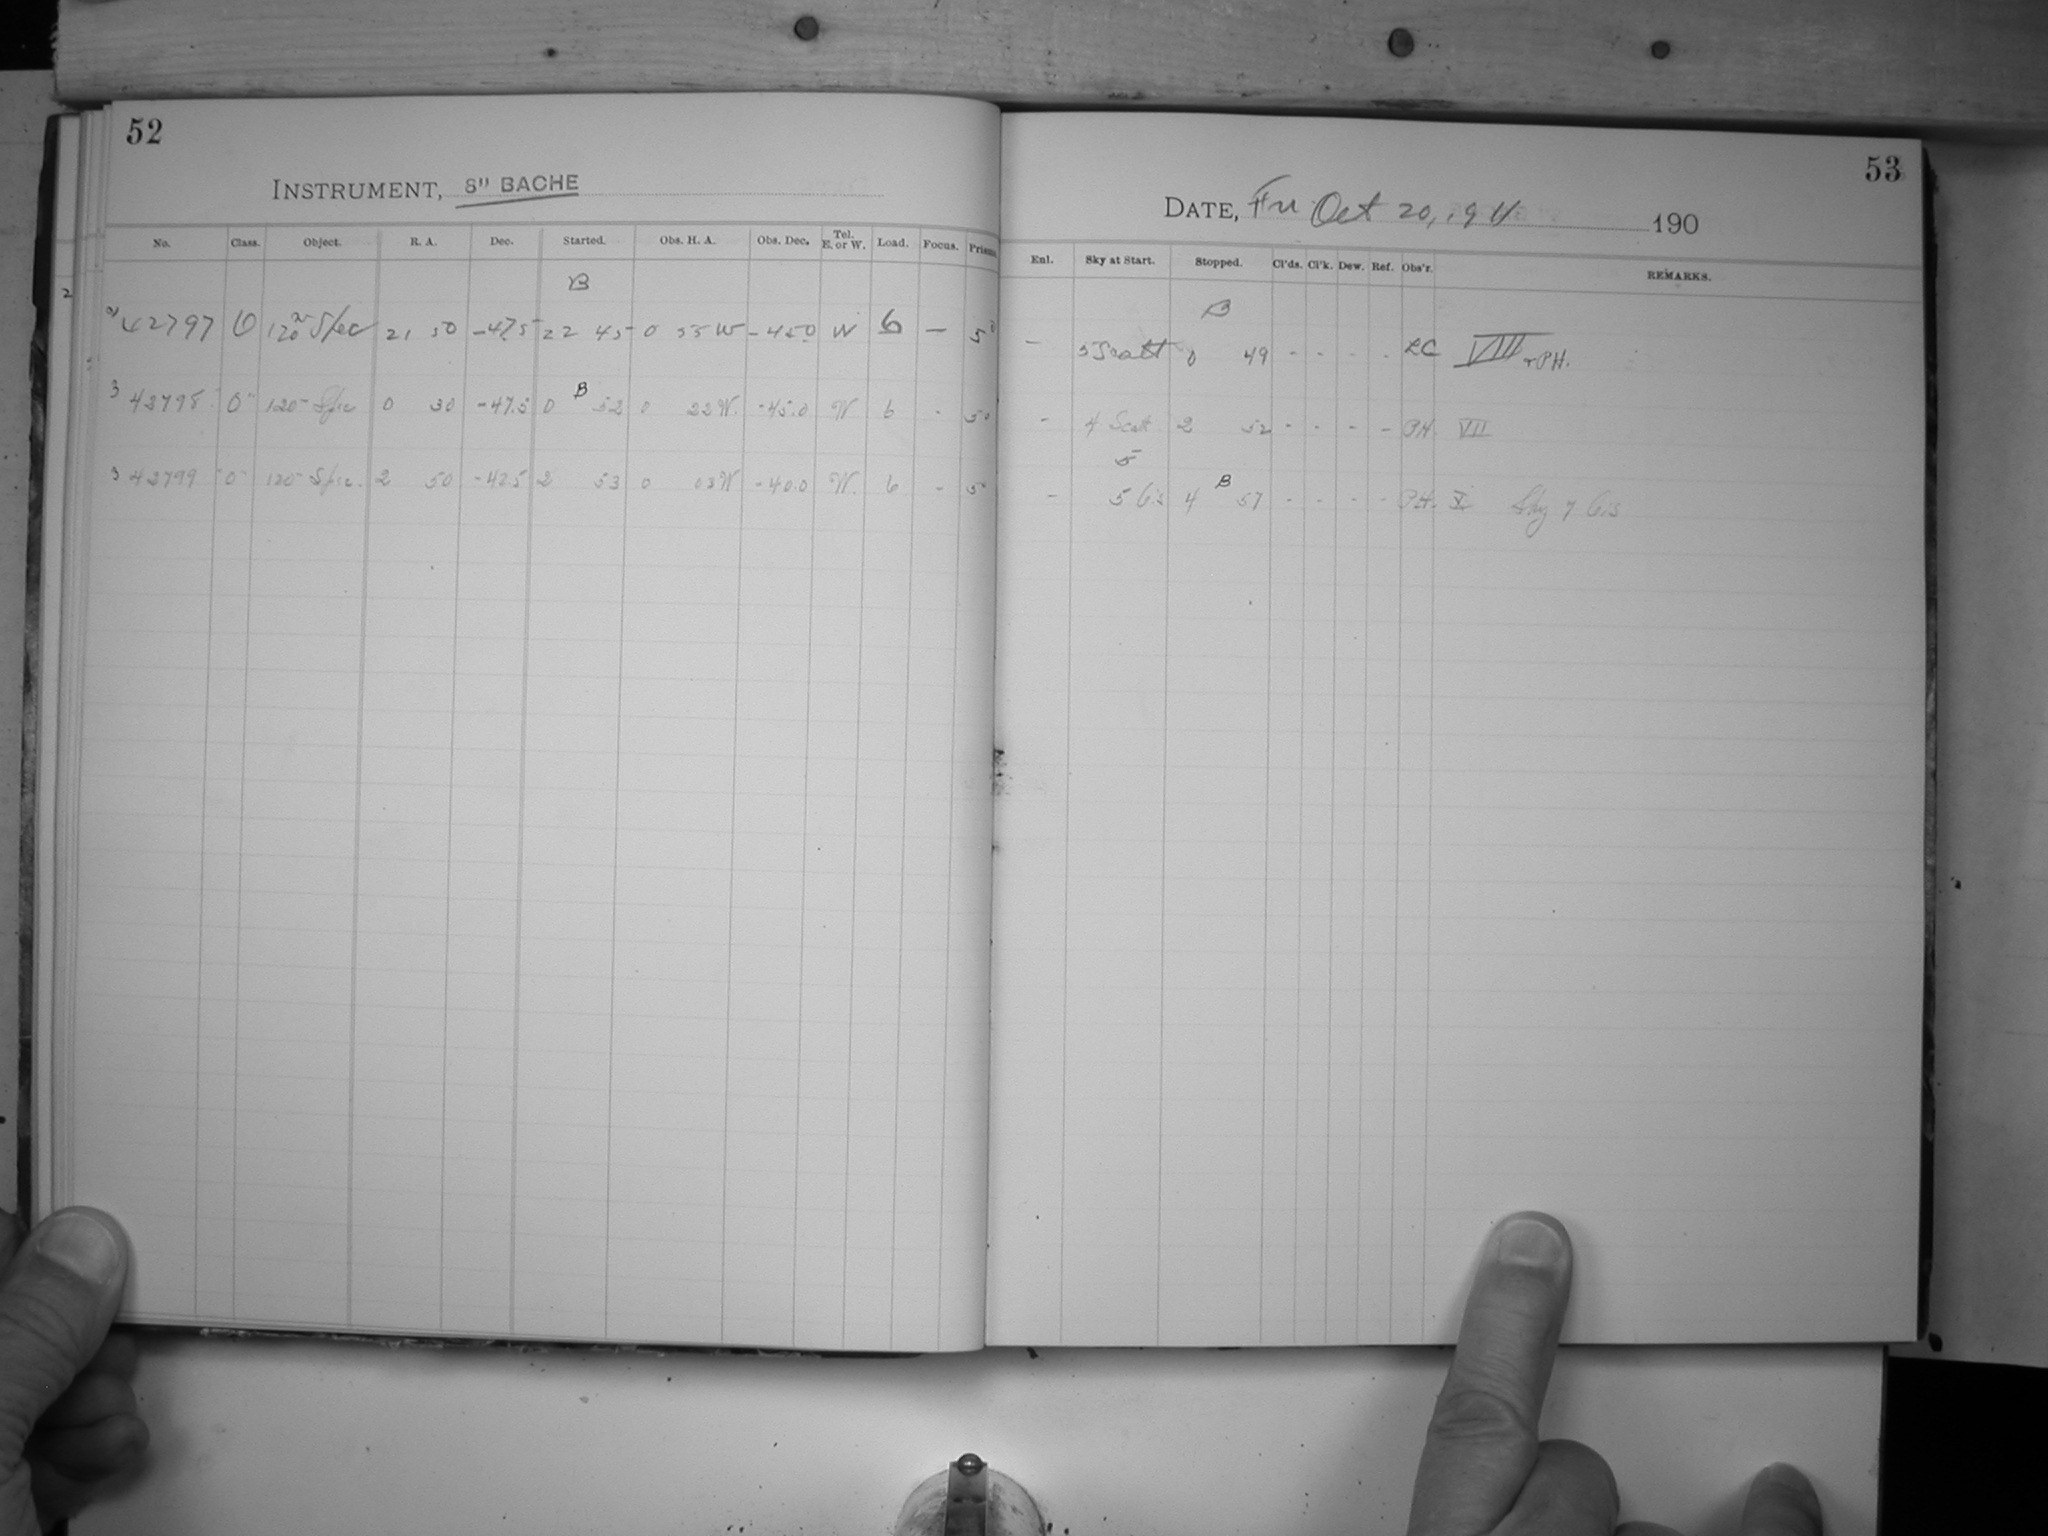 52
INSTRUMENT, 8" BACHE
No. Class. Object. R. A. Dec. Started. Obs. H. A. Obs. Dec. Tel. E. or W. Load. Focus. Prisms
B
42797 O 120m Spec 21 50 -47.5 22 45 0 55 W -45.0 W 6 — 5°
3 42798 O 120m Spec 0 30 -47.5 0 B 52 0 22 W. -45.0 W 6 - 5°
3 42799 O 120m Spec. 2 50 -42.5 2 53 0 03 W -40.0 W. 6 - 5°
2
53
DATE, Fri Oct 20, 1911 190
Enl. Sky at Start. Stopped. Cl'ds. Cl'k. Dew. Ref. Obs'r. REMARKS.
B
— 5 Scatt 0 49 - - - - LC VIII + PH.
- 4 Scatt 2 52 - - - - PH. VII
5
- 5 Cis 4 B 57 - - - - PH. V Sky 7 Cis